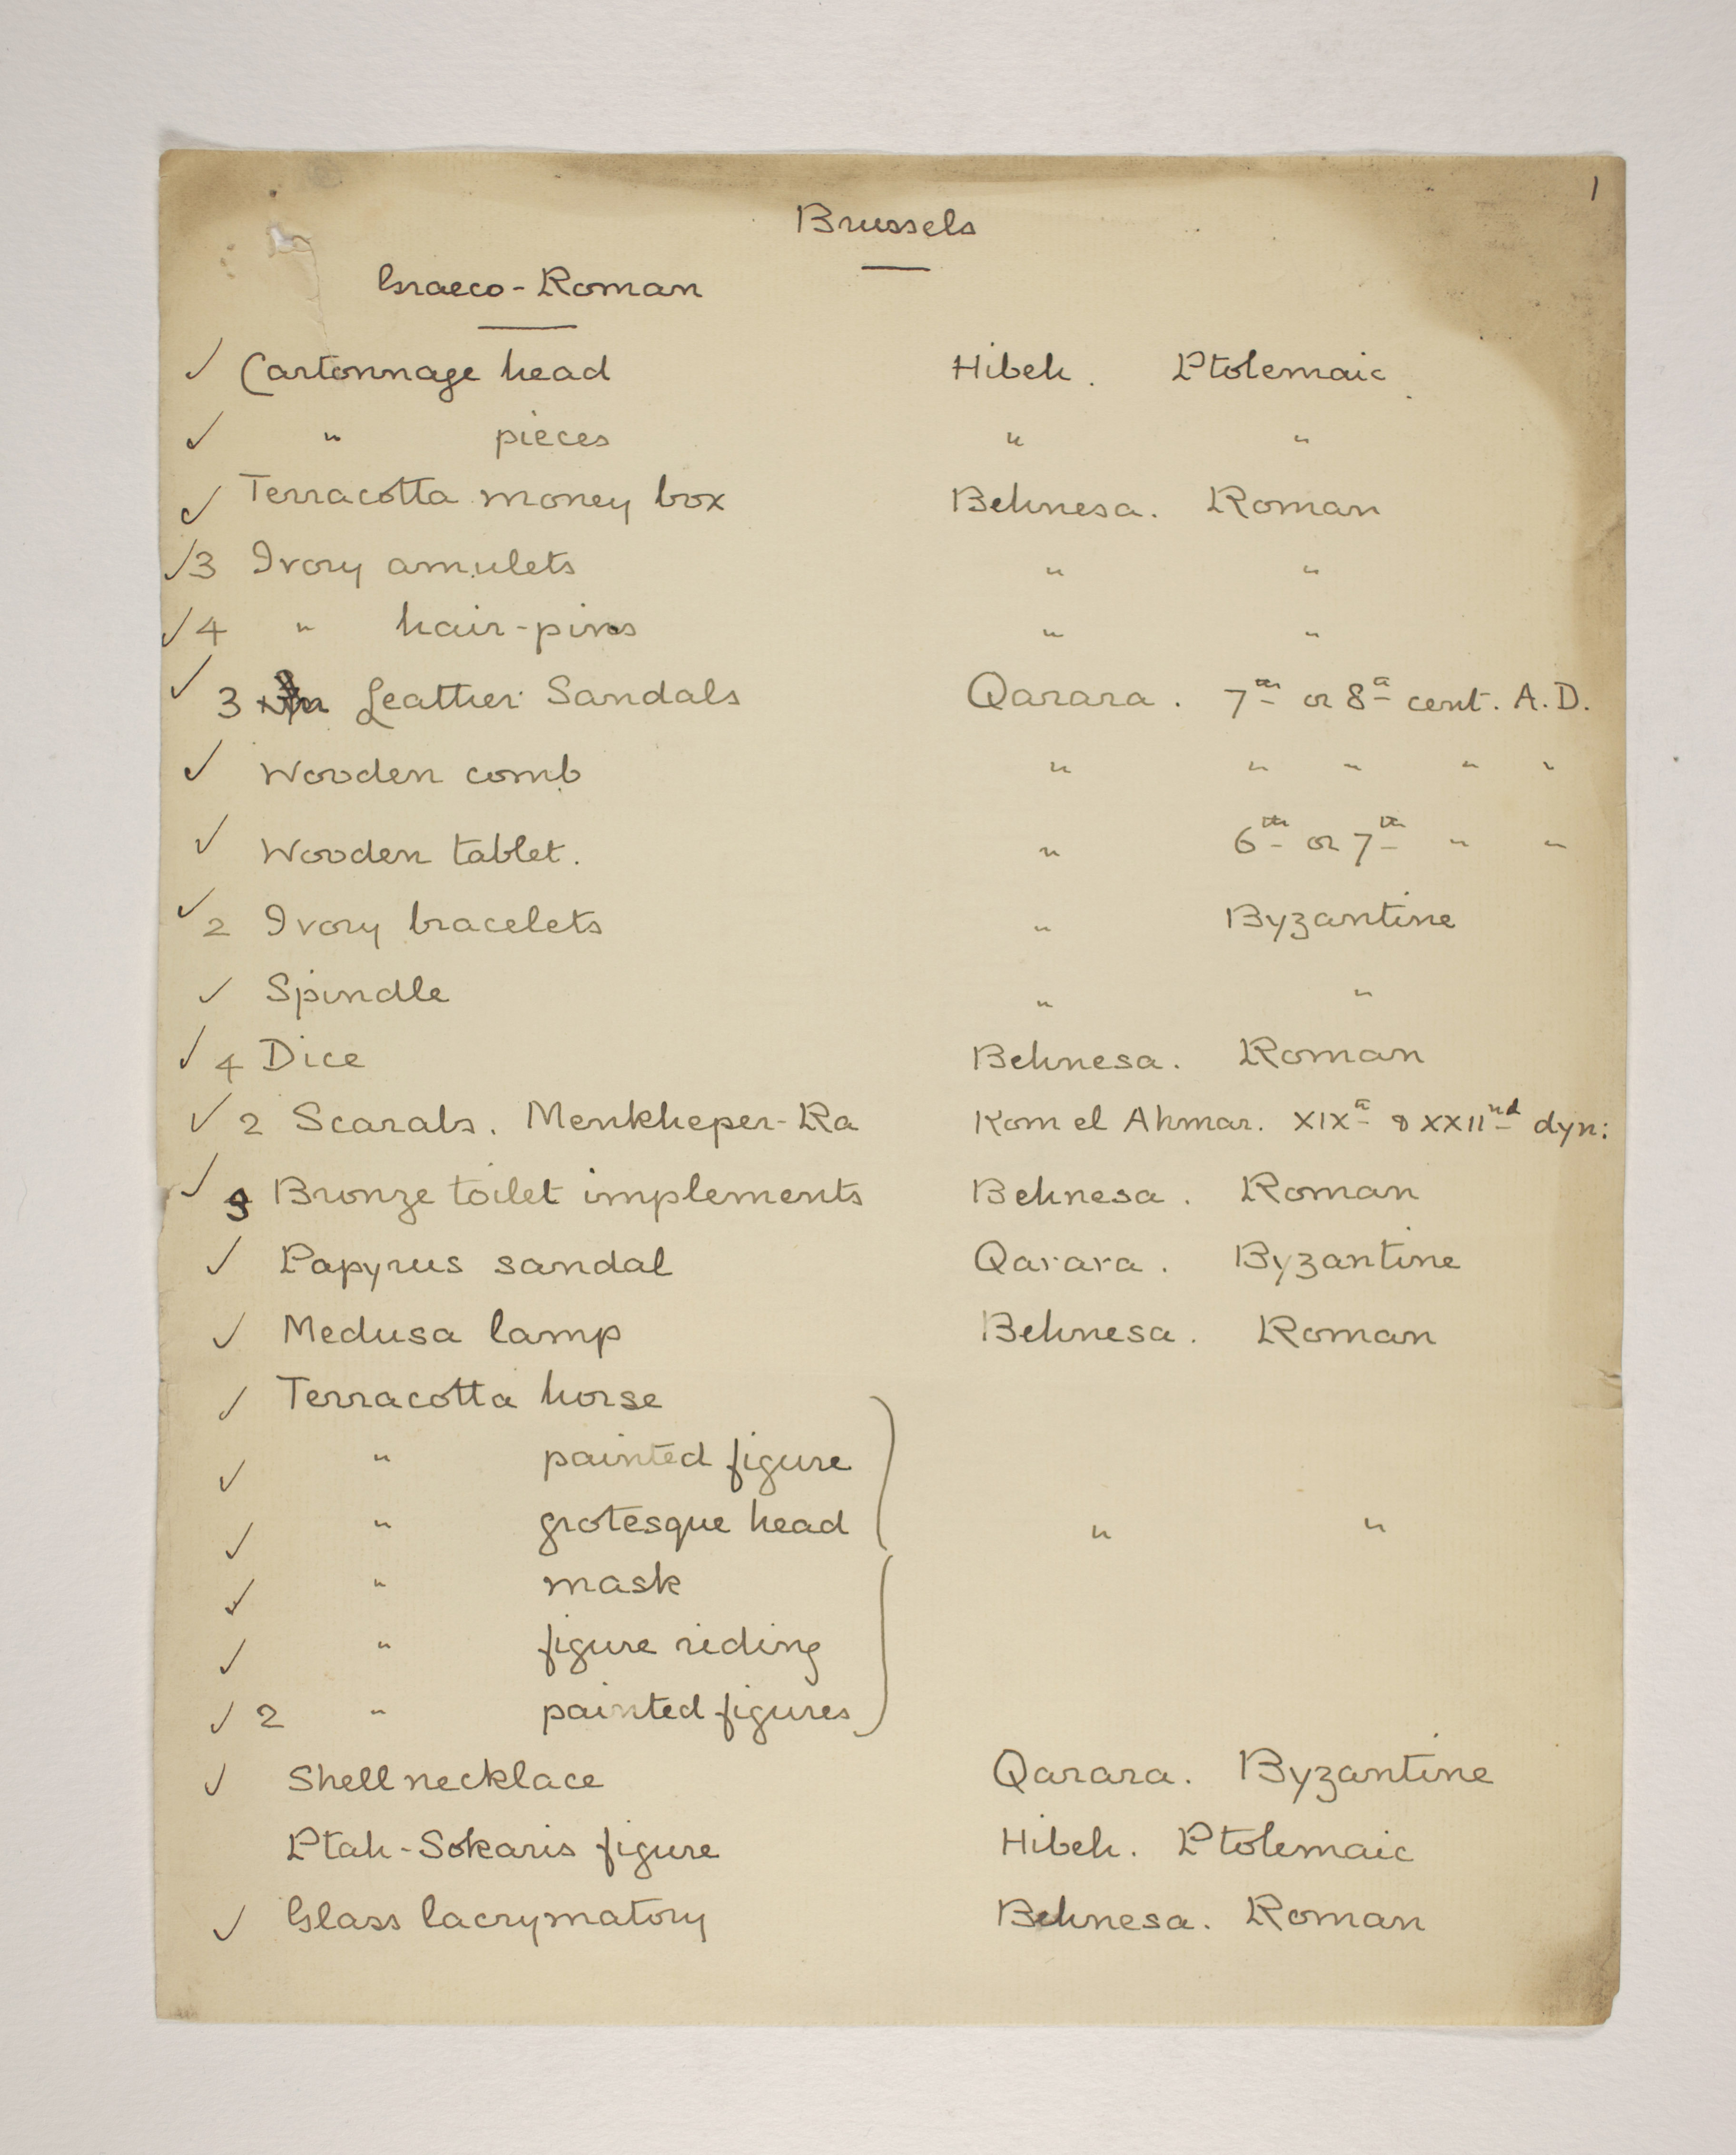 1
Brussels
Graeco-Roman
✓ Cartonnage head Hibeh. Ptolemaic.
✓ " pieces " "
✓ Terracotta money box Behnesa. Roman
✓ 3 Ivory amulets " "
✓ 4 " hair-pins " "
✓ 3 Leather Sandals Qarara. 7th or 8th cent. A.D.
✓ Wooden comb " " " " "
✓ Wooden tablet. " 6th or 7th " "
✓ 2 Ivory bracelets " Byzantine
✓ Spindle " "
✓ 4 Dice Behnesa. Roman
✓ 2 Scarabs. Menkheper-Ra Kom el Ahmar. XIXth & XXIInd dyn:
✓ Bronze toilet implements Behnesa. Roman
✓ Papyrus sandal Qarara. Byzantine
✓ Medusa lamp Behnesa. Roman
✓ Terracotta horse
✓ " painted figure
✓ " grotesque head " "
✓ " mask
✓ " figure riding
✓ 2 " painted figures
✓ Shell necklace Qarara. Byzantine
Ptah-Sokaris figure Hibeh. Ptolemaic
✓ Glass lacrymatory Behnesa. Roman